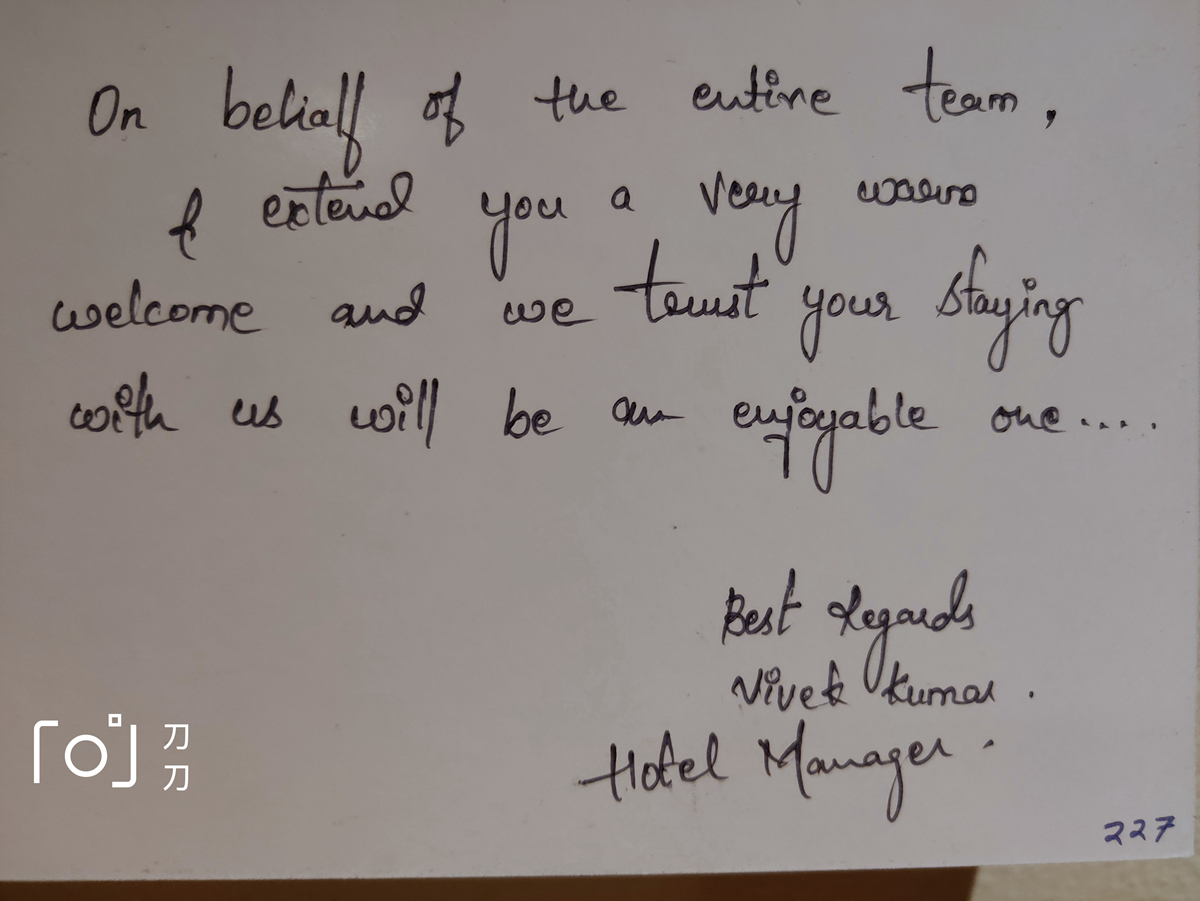 On behalf of the entire team,
I extend you a very warm
welcome and we trust your staying
with us will be an enjoyable one.....
Best Regards
Vivek Kumar.
Hotel Manager.
227
刀
刀